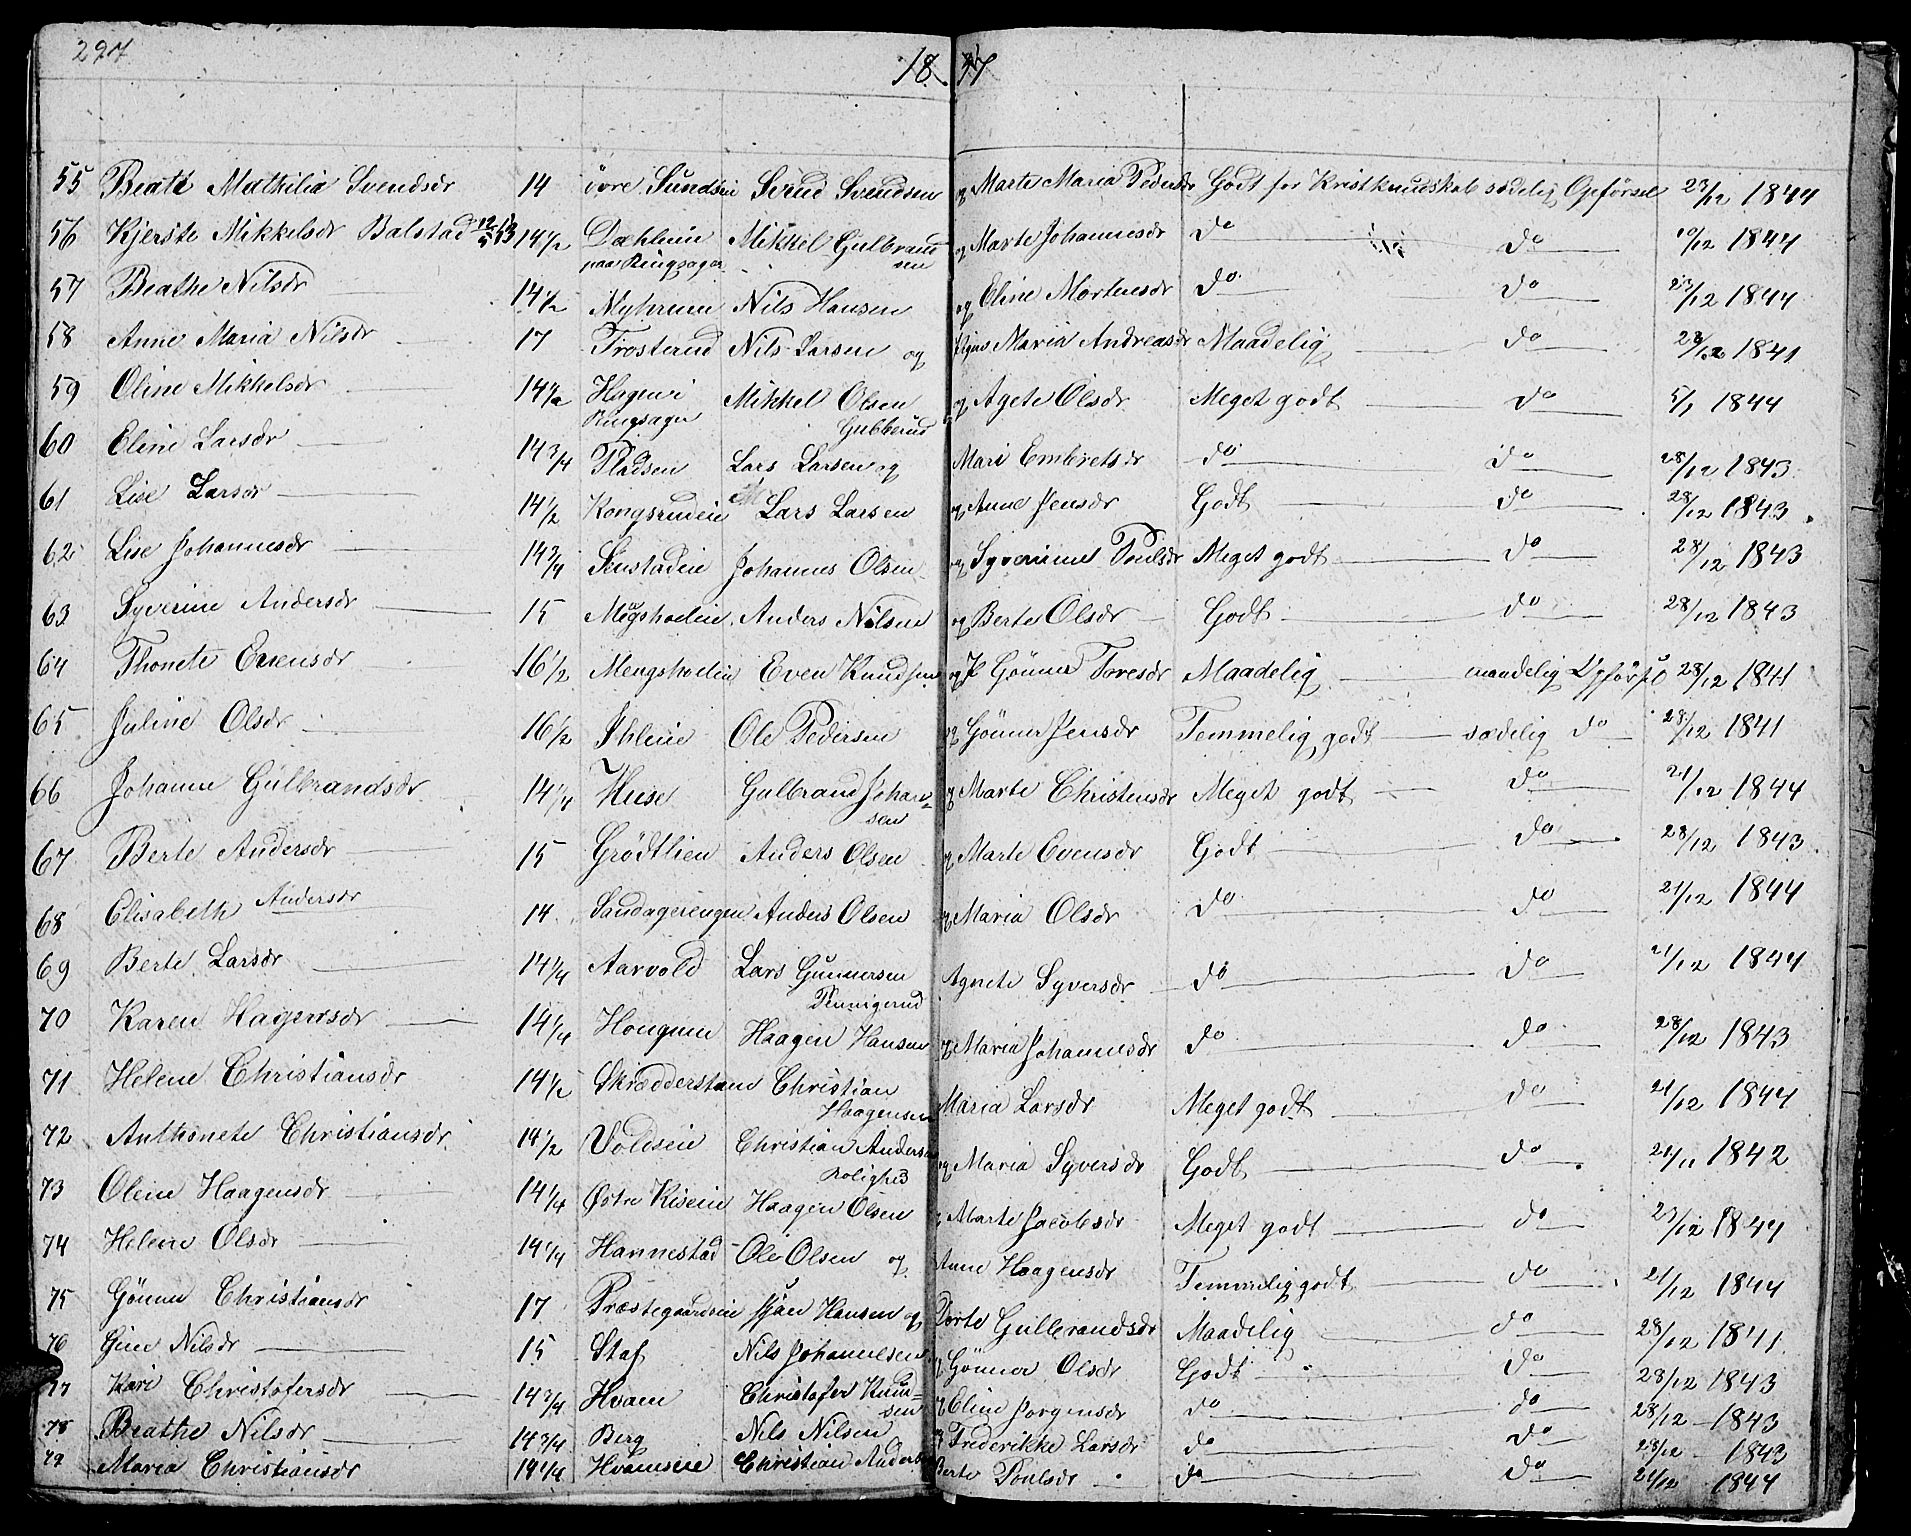 297
18
55 Beate Mathilia Svendsdr 14 övre Sundeie Svend Svendsen og Marte Maria Pedersdr Godt for Kristkundskab sædelig Opførsel 23/12 1844
56 Kjerste Mikkelsdr Balstad 14 1/2 Dæhleiin Mikkel Gulbrand og Marte Johannesdr do do 10/12 1844
paa Ringsager sen
57 Beathe Nilsdr 14 1/2 Myhreun Nils Hansen og Eline Mortensdr do do 23/12 1844
58 Anne Maria Nilsdr 17 Trosterud Nils Larsen og Maria Andreasdr Maadelig do 28/12 1841
59 Oline Mikkelsdr 14 1/2 Hagen i Mikkel Olsen og Agete Olsdr Meget godt do 5/1 1844
Ringsager Gubberud
60 Eline Larsdr 14 3/4 Pladsen Lars Larsen og Mari Embretsdr do do 28/12 1843
61 Lise Larsdr 14 1/2 Kongsrudeie Lars Larsen og Anne Jensdr Godt do 28/12 1843
62 Lise Johannesdr 14 3/4 Senstadeie Johannes Olsen og Syverine Poulsdr Meget godt do 28/12 1843
63 Syverine Andersdr 15 Megshoeleie Anders Nilsen og Berte Olsdr Godt do 28/12 1843
64 Thonete Evensdr 16 1/2 Mengshoelen Even Knudsen og Gönner Toresdr Maadelig maadelig Opførsel 28/12 1841
65 Juline Olsdr 16 1/2 Ihleiie Ole Pedersen og Gönner Jensdr Temmelig godt sædelig do 28/12 1841
66 Johanne Gulbrandsdr 14 1/4 Huse Gulbrand Johan= og Marte Christensdr Meget godt do 21/12 1844
sen
67 Berte Andersdr 15 Grödtlien Anders Olsen og Marte Evensdr Godt do 28/12 1843
68 Elisabeth Andersdr 14 Sandagerengen Anders Olsen og Maria Olsdr do do 21/12 1844
69 Berte Larsdr 14 1/4 Aarvold Lars Gunnersen Agnete Syversdr do do 21/12 1844
Pennigerud
70 Karen Hagensdr 14 1/4 Hougeun Haagen Hansen og Maria Johannesdr do do 28/12 1843
71 Helene Christiansdr 14 1/2 Skrædderstuen Christian Maria Larsdr Meget godt do 21/12 1844
Haagensen
72 Anthonete Christiansdr 14 1/2 Voldseie Christian Anders og Maria Syversdr Godt do 21/11 1842
Rolighed
73 Oline Haagensdr 14 1/4 Østre Riseeie Haagen Olsen og Marte Jacobsdr Meget godt do 23/12 1844
74 Helene Olsdr 14 1/4 Hannestad Ole Olsen og Anne Haagensdr Temmelig godt do 21/12 1844
75 Gönner Christiansdr 17 Præstegaardseie Hansen og Berte Gulbrandsdr Maadelig do 28/12 1841
76 Gine Nilsdr 15 Staf Nils Johannesen og Gönner Olsdr Godt do 28/12 1843
77 Kari Christofersdr 14 3/4 Hvam Christofer Knud= og Eline Jorgensdr do do 28/12 1843
sen
78 Beathe Nilsdr 14 3/4 Berg Nils Nilsen og Frederikke Larsdr do do 28/12 1843
79 Maria Christiansdr 14 1/4 Hvamseie Christian Anders Berte Poulsdr do do 21/12 1844